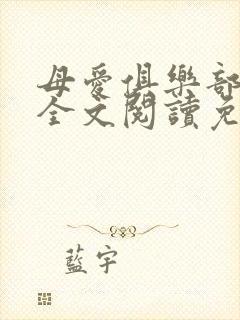 母愛俱樂部
全文閱讀免
藍宇